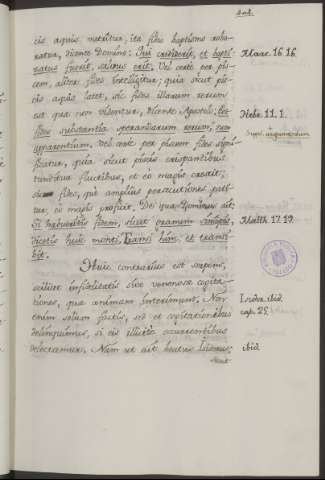 cis aquis nutritur, ita fides baptismo robo-
ratur, dicente Domino: Qui crediderit, et bapti-
zatus fuerit, salvus erit. Vel certe per pis-
cem, aliter fides intelligitur; quia sicut pis-
cis aquis latet, sic fides illarum rerum
est quæ non videntur, dicente Apostolo: Est
fides substantia sperandarum rerum, non
apparentium. Vel certe per piscem fides signi-
ficatur, quia sicut piscis crispantibus
tunditur fluctibus, et eo magis crescit;
sic fides, quo amplius persecutiones pati-
tur, eo magis proficit. De qua Dominus ait:
Si habueritis fidem, sicut granum sinapis,
dicetis huic monti, Transi hinc, et transi-
bit.
Huic contrarius est serpens,
scilicet infidelitatis sive venenosæ cogita-
tiones, quæ animam interimunt. Non
enim solum factis, sed et cogitationibus
delinquimus, si eis illicite occurrentibus
delectamur. Nam ut ait beatus Isidorus:
Marc. 16. 16.
Hebr. 11. 1.
Matth. 17. 19.
Isidor. ibid.
cap. 25.
ibid.